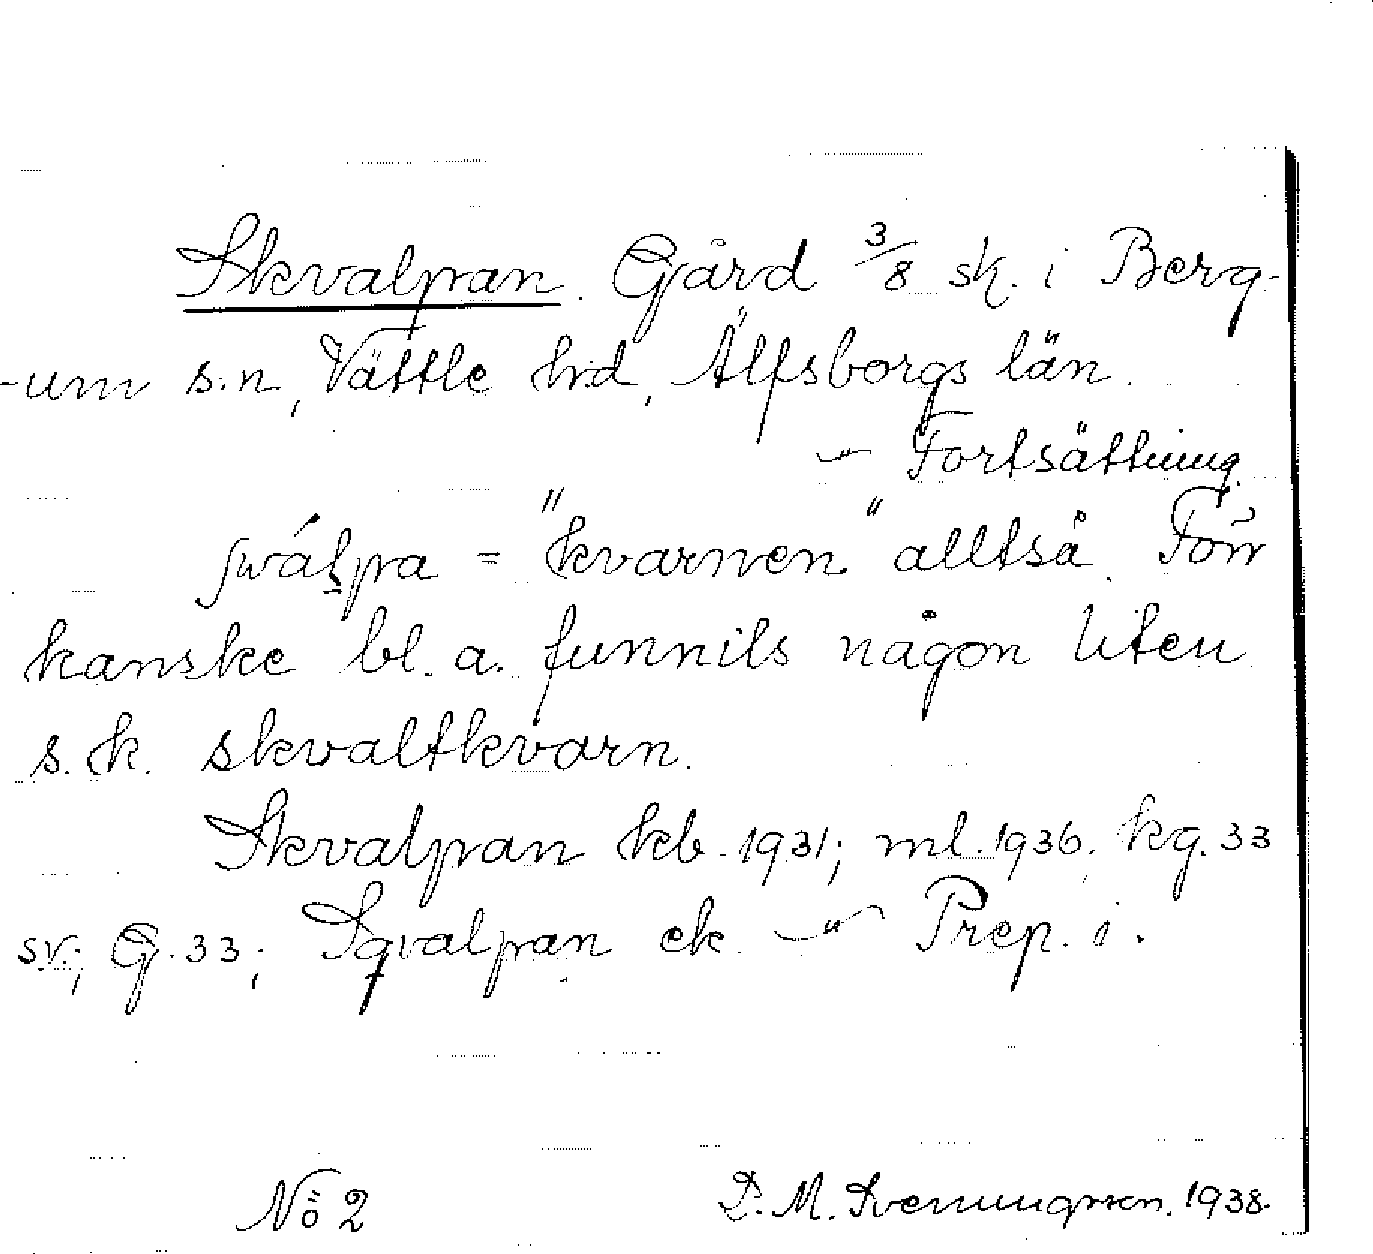 Skvalpan. Gård 3/8 sk. i Berg-
-um s.n, Vättle hd, Älfsborgs län.
~"~ Fortsättning.
= "kvarnen" alltså. Förr
kanske bl. a. funnits någon liten
s. k. skvaltkvarn.
Skvalpan kb. 1931; ml. 1936. kg. 33
sv.; G. 33; Sqvalpan ek ~"~ Prep. i.
No 2 D. M. Sveningsson. 1938.